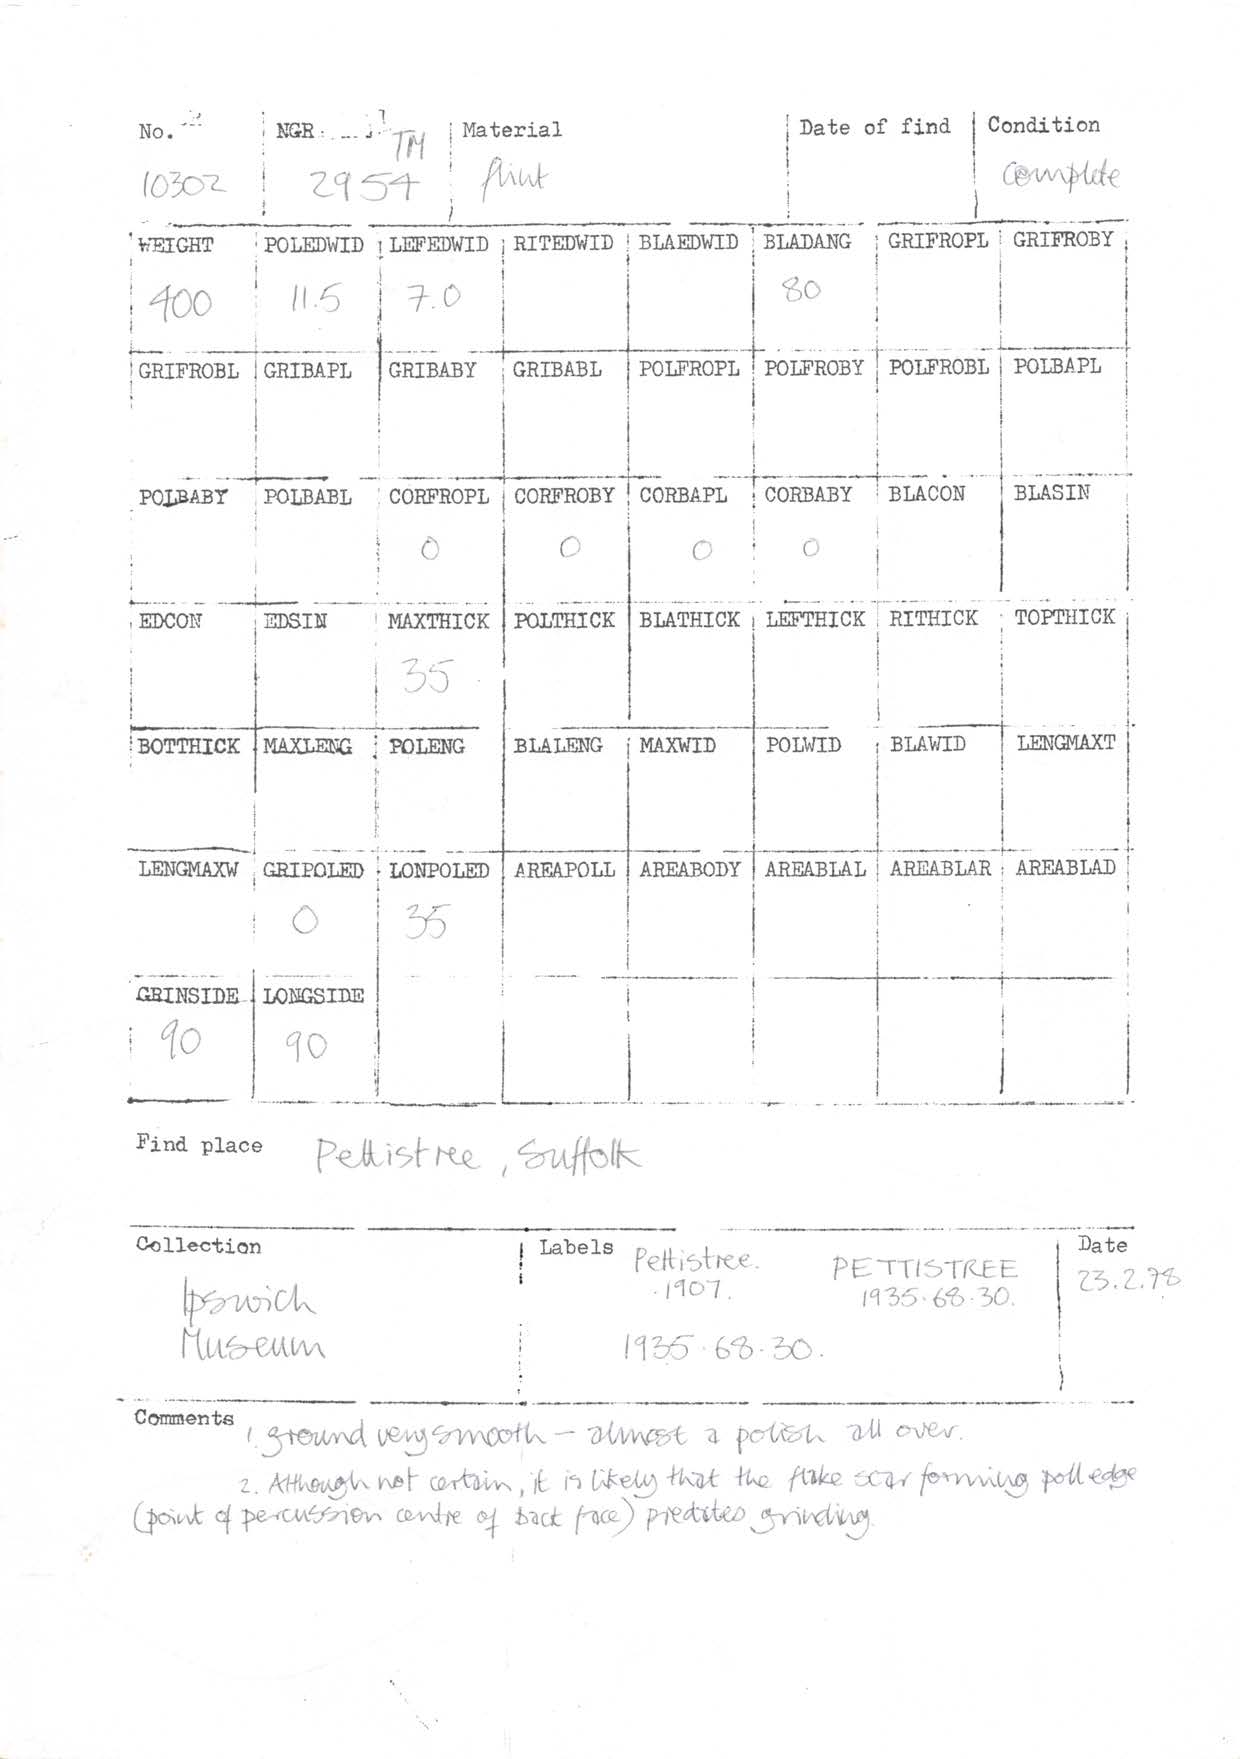 No. NGR Material Date of find Condition
10302 TM 2954 flint complete
WEIGHT POLEDWID LEFEDWID RITEDWID BLAEDWID BLADANG GRIFROPL GRIFROBY
400 11.5 7.0 80
GRIFROBL GRIBAPL GRIBABY GRIBABL POLFROPL POLFROBY POLFROBL POLBAPL
POLBABY POLBABL CORFROPL CORFROBY CORBAPL CORBABY BLACON BLASIN
0 0 0 0
EDCON EDSIN MAXTHICK POLTHICK BLATHICK LEFTHICK RITHICK TOPTHICK
35
BOTTHICK MAXLENG POLENG BLALENG MAXWID POLWID BLAWID LENGMAXT
LENGMAXW GRIPOLED LONPOLED AREAPOLL AREABODY AREABLAL AREABLAR AREABLAD
0 35
GRINSIDE LONGSIDE
90 90
Find place Pettistree, Suffolk
Collection Labels Date
Ipswich Museum
Pettistree.
1907.
PETTISTREE
1935.68.30.
1935.68.30.
23.2.78
Comments 1. ground very smooth — almost a polish all over.
2. Although not certain, it is likely that the flake scar forming poll edge
(point of percussion centre of back face) predates grinding.